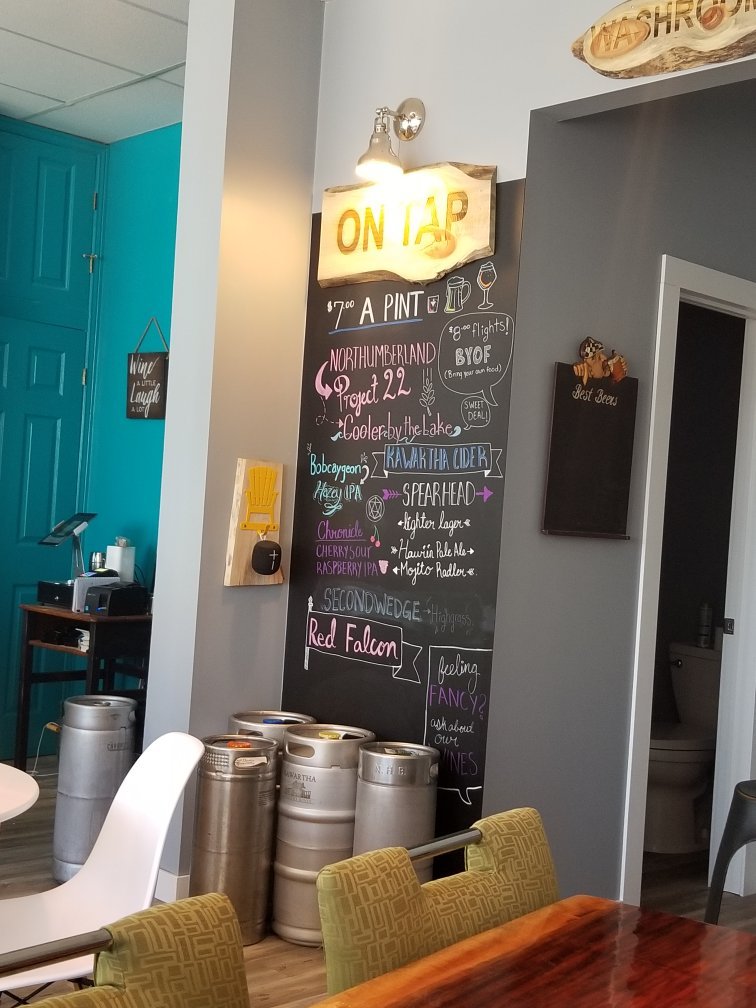 WASHROOM
ON TAP
$7.00 A PINT
$8.00 flights!
BYOF
(Bring your own food)
SWEET
DEAL!
NORTHUMBERLAND
Project 22
Cooler by the Lake
KAWARTHA CIDER
Bobcaygeon
Hazey IPA
SPEARHEAD
lighter lager
Hawi'in Pale Ale
Mojito Radler
Chronicle
CHERRY SOUR
RASPBERRY IPA
SECONDWEDGE
Highgrass
Red Falcon
feeling
FANCY?
ask about
our
WINES
Best Beers
Wine
A LITTLE
Laugh
A LOT
KAWARTHA
N.H.B.